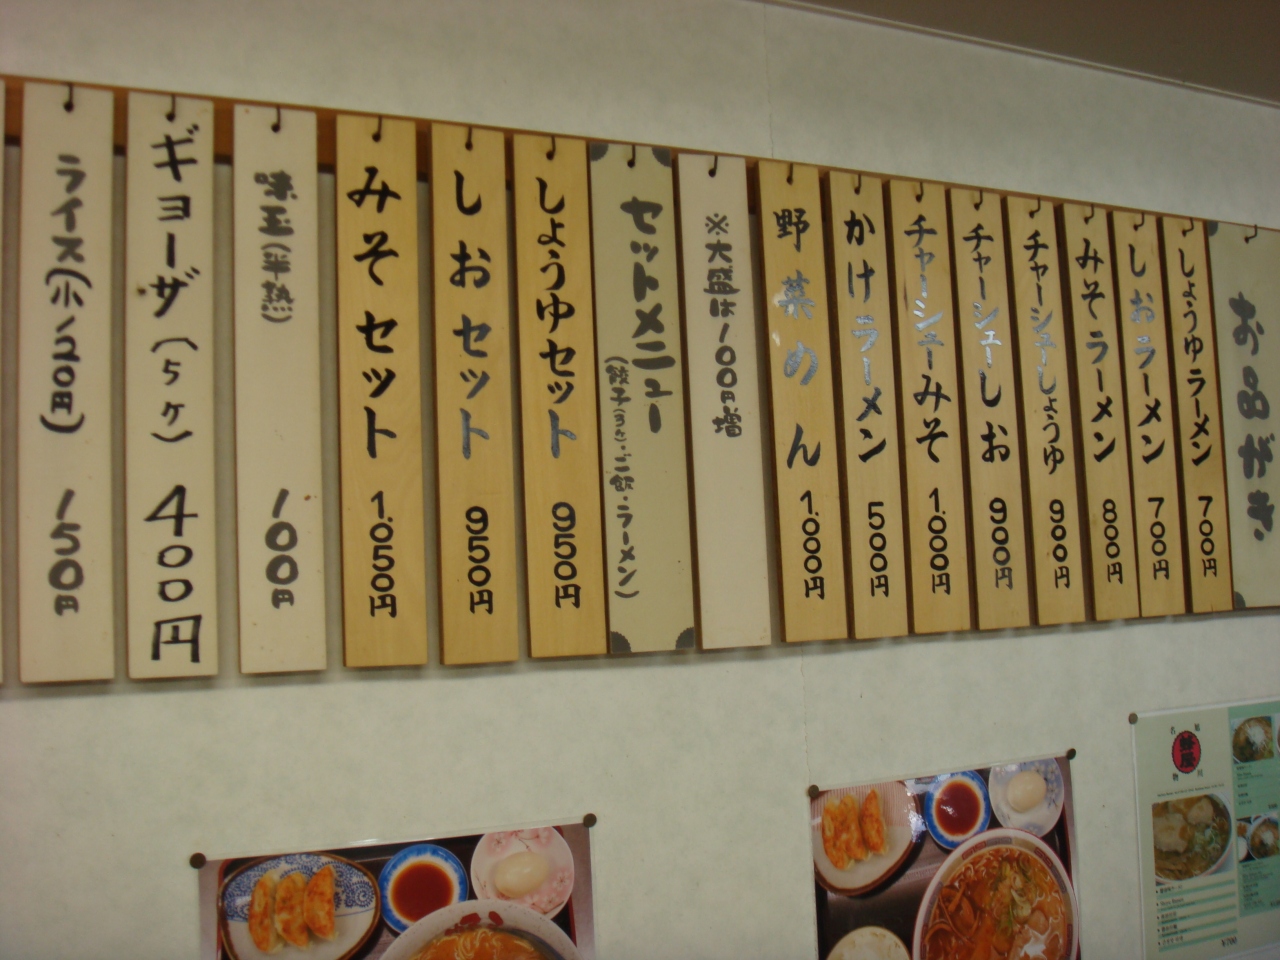 お品がき
しょうゆラーメン 700円
しおラーメン 700円
みそラーメン 800円
チャーシューしょうゆ 900円
チャーシューしお 900円
チャーシューみそ 1.000円
かけラーメン 500円
野菜めん 1.000円
※大盛は100円増
セットメニュー
(餃子(3ケ)・ご飯・ラーメン)
しょうゆセット 950円
しおセット 950円
みそセット 1.050円
味玉(半熟) 100円
ギョーザ(5ケ) 400円
ライス(小120円) 150円
蜂屋
¥700